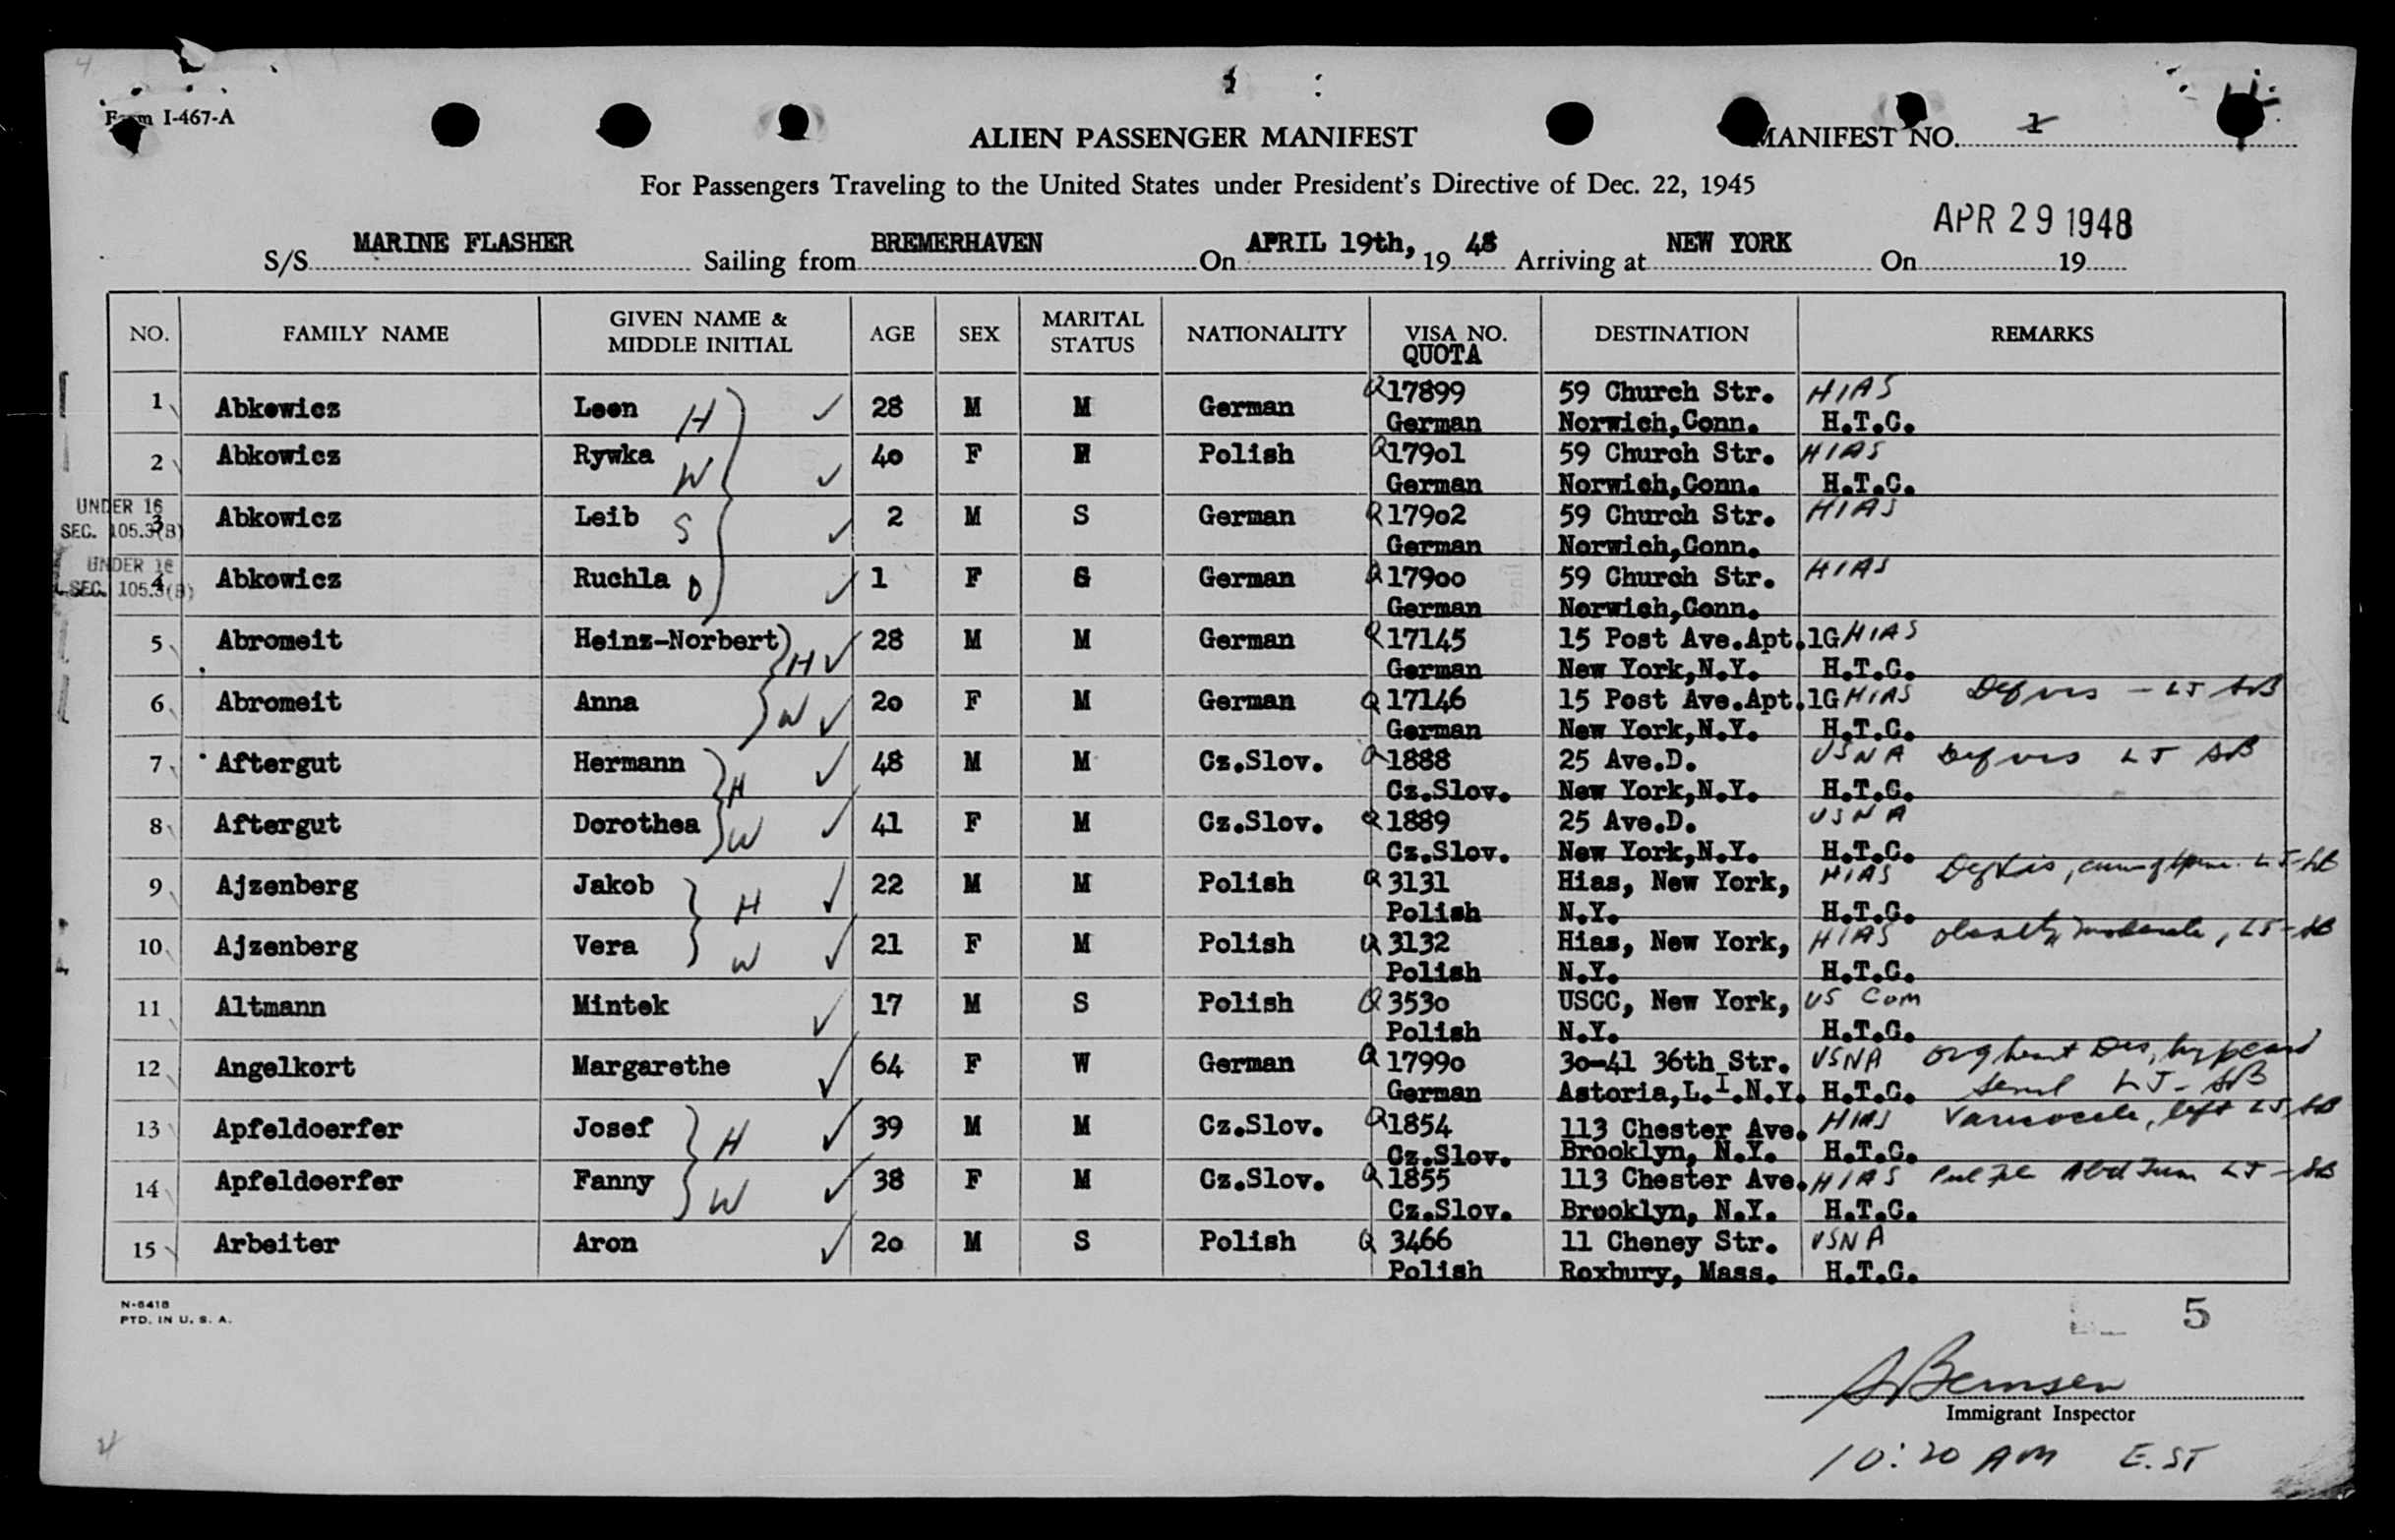 4
1
Form I-467-A
ALIEN PASSENGER MANIFEST
MANIFEST NO. 1
For Passengers Traveling to the United States under President's Directive of Dec. 22, 1945
APR 29 1948
S/S MARINE FLASHER Sailing from BREMERHAVEN On APRIL 19th, 19 48 Arriving at NEW YORK On 19
NO. FAMILY NAME GIVEN NAME & MIDDLE INITIAL AGE SEX MARITAL STATUS NATIONALITY VISA NO. QUOTA DESTINATION REMARKS
1 Abkowicz Leon H ✓ 28 M M German Q 17899 59 Church Str. HIAS
German Norwich,Conn. H.T.C.
2 Abkowicz Rywka W ✓ 40 F M Polish Q 17901 59 Church Str. HIAS
German Norwich,Conn. H.T.C.
UNDER 16
SEC. 105.3(B)
3 Abkowicz Leib S ✓ 2 M S German Q 17902 59 Church Str. HIAS
German Norwich,Conn.
UNDER 16
SEC. 105.3(B)
4 Abkowicz Ruchla D ✓ 1 F S German Q 17900 59 Church Str. HIAS
German Norwich,Conn.
5 Abromeit Heinz-Norbert H ✓ 28 M M German Q 17145 15 Post Ave.Apt.1G HIAS
German New York,N.Y. H.T.C.
6 Abromeit Anna W ✓ 20 F M German Q 17146 15 Post Ave.Apt.1G HIAS Def vis - LJ
German New York,N.Y. H.T.C.
7 Aftergut Hermann H ✓ 48 M M Cz.Slov. Q 1888 25 Ave.D. USNA Def vis LJ
Cz.Slov. New York,N.Y. H.T.C.
8 Aftergut Dorothea W ✓ 41 F M Cz.Slov. Q 1889 25 Ave.D. USNA
Cz.Slov. New York,N.Y. H.T.C.
9 Ajzenberg Jakob H ✓ 22 M M Polish Q 3131 Hias, New York, HIAS
Polish N.Y. H.T.C.
10 Ajzenberg Vera W ✓ 21 F M Polish Q 3132 Hias, New York, HIAS obesity, moderate, LJ
Polish N.Y. H.T.C.
11 Altmann Mintek ✓ 17 M S Polish Q 3530 USCC, New York, US Com
Polish N.Y. H.T.C.
12 Angelkort Margarethe ✓ 64 F W German Q 17990 30-41 36th Str. USNA Org heart Dis,
German Astoria,L.I.N.Y. H.T.C. LJ
13 Apfeldoerfer Josef H ✓ 39 M M Cz.Slov. Q 1854 113 Chester Ave. HIAS Varicocele, left LJ
Cz.Slov. Brooklyn, N.Y. H.T.C.
14 Apfeldoerfer Fanny W ✓ 38 F M Cz.Slov. Q 1855 113 Chester Ave. HIAS LJ
Cz.Slov. Brooklyn, N.Y. H.T.C.
15 Arbeiter Aron ✓ 20 M S Polish Q 3466 11 Cheney Str. USNA
Polish Roxbury, Mass. H.T.C.
N-8418
PTD. IN U. S. A.
5
Immigrant Inspector
10:20 AM E.ST